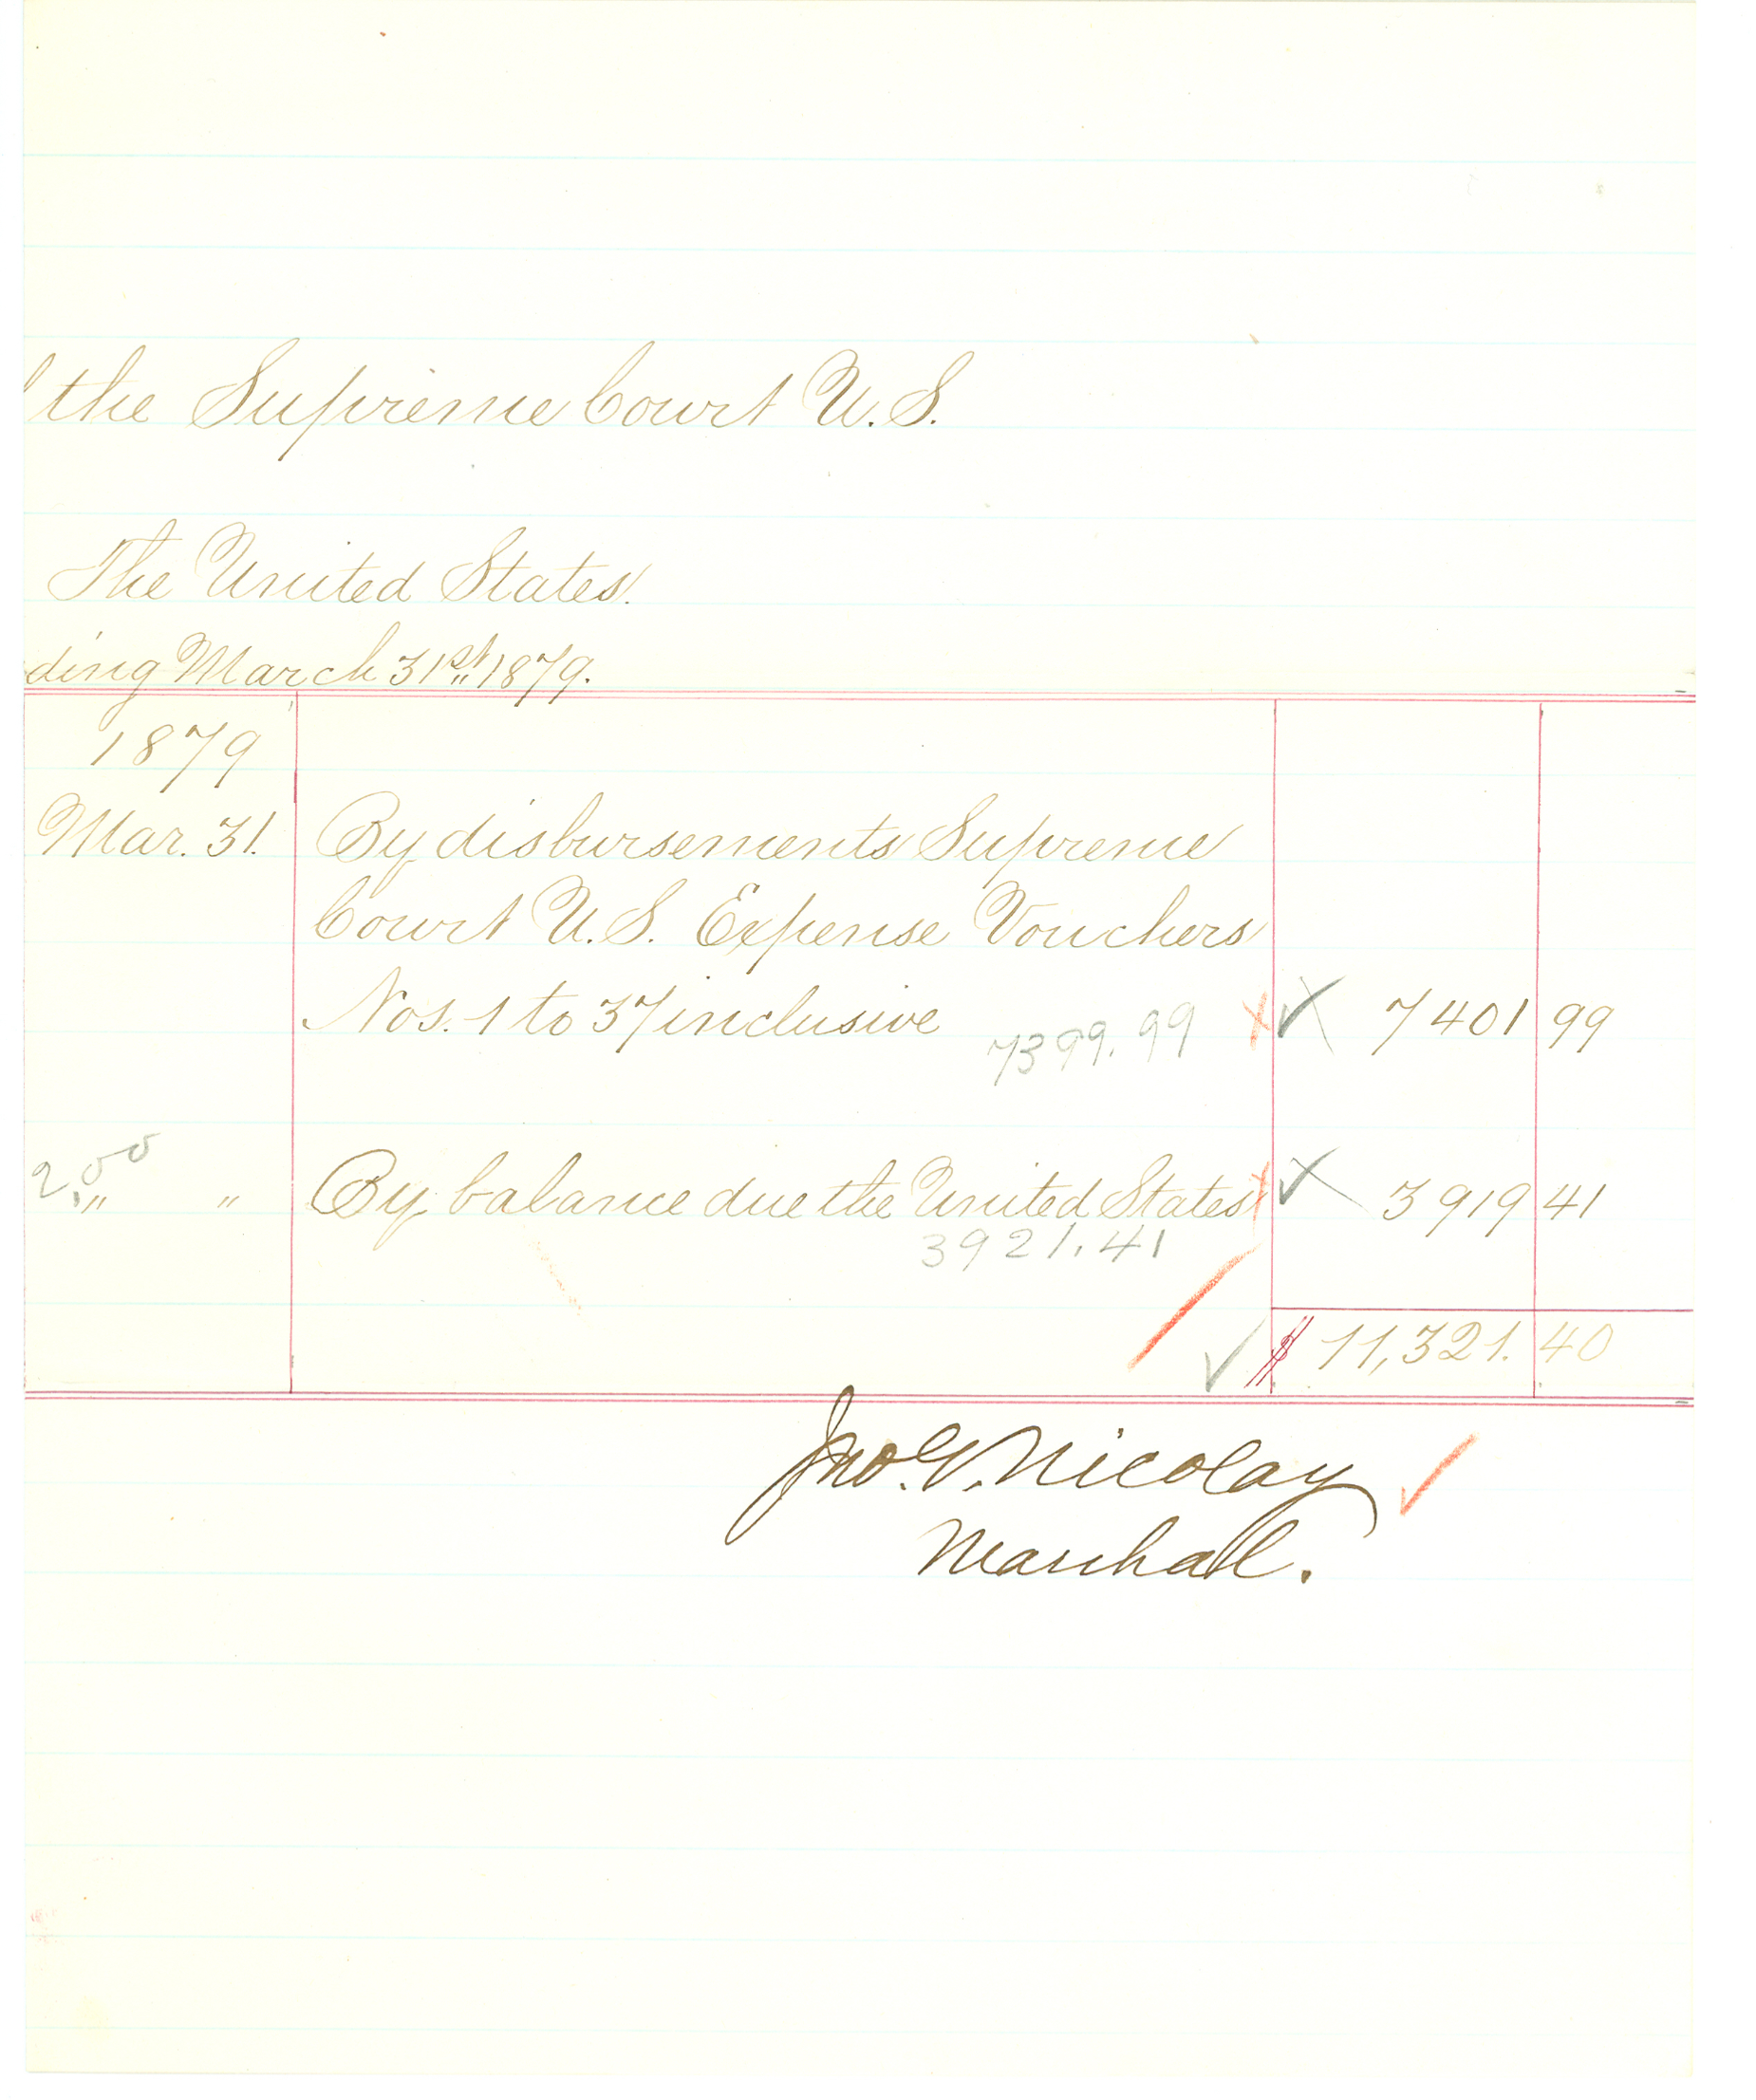 the Supreme Court U.S.
The United States.
ding March 31st 1879.
1879
Mar. 31. By disbursements Supreme
Court U.S. Expense Vouchers
Nos. 1 to 37 inclusive 7401 99
7399.99
2.00
" " By balance due the United States 3919 41
3921.41
$ 11,321. 40
Jno. G. Nicolay
Marshall.